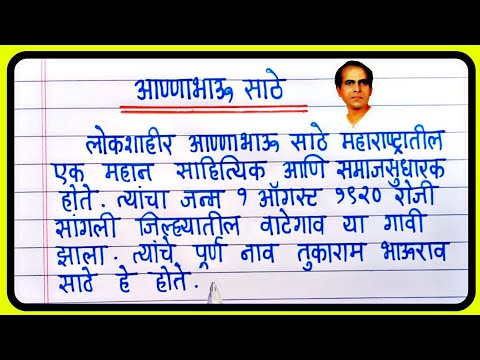 आण्णाभाऊ साठे
लोकशाहीर आण्णाभाऊ साठे महाराष्ट्रातील
एक महान साहित्यिक आणि समाजसुधारक
होते. त्यांचा जन्म १ ऑगस्ट १९२० रोजी
सांगली जिल्ह्यातील वाटेगाव या गावी
झाला. त्यांचे पूर्ण नाव तुकाराम भाऊराव
साठे हे होते.